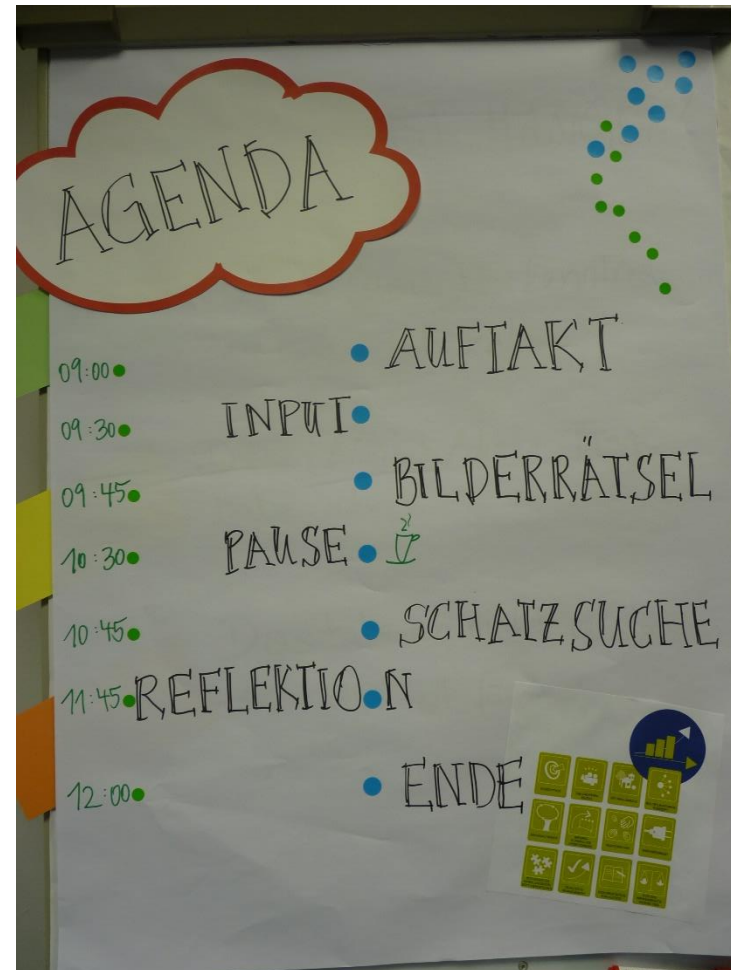 AGENDA
09:00 AUFTAKT
09:30 INPUT
09:45 BILDERRÄTSEL
10:30 PAUSE
10:45 SCHATZSUCHE
11:45 REFLEKTION
12:00 ENDE